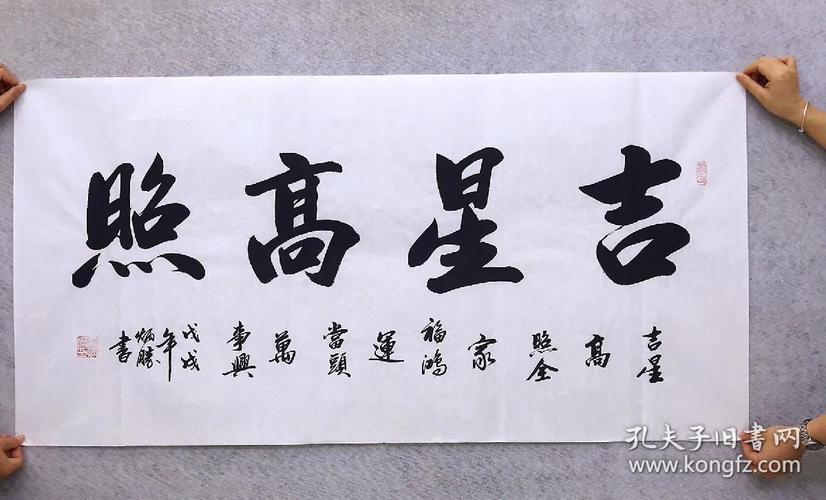 吉星高照
吉星高照全家福鸿運當頭萬事興
戊戌年炳勝書
孔夫子旧書网
www.kongfz.com